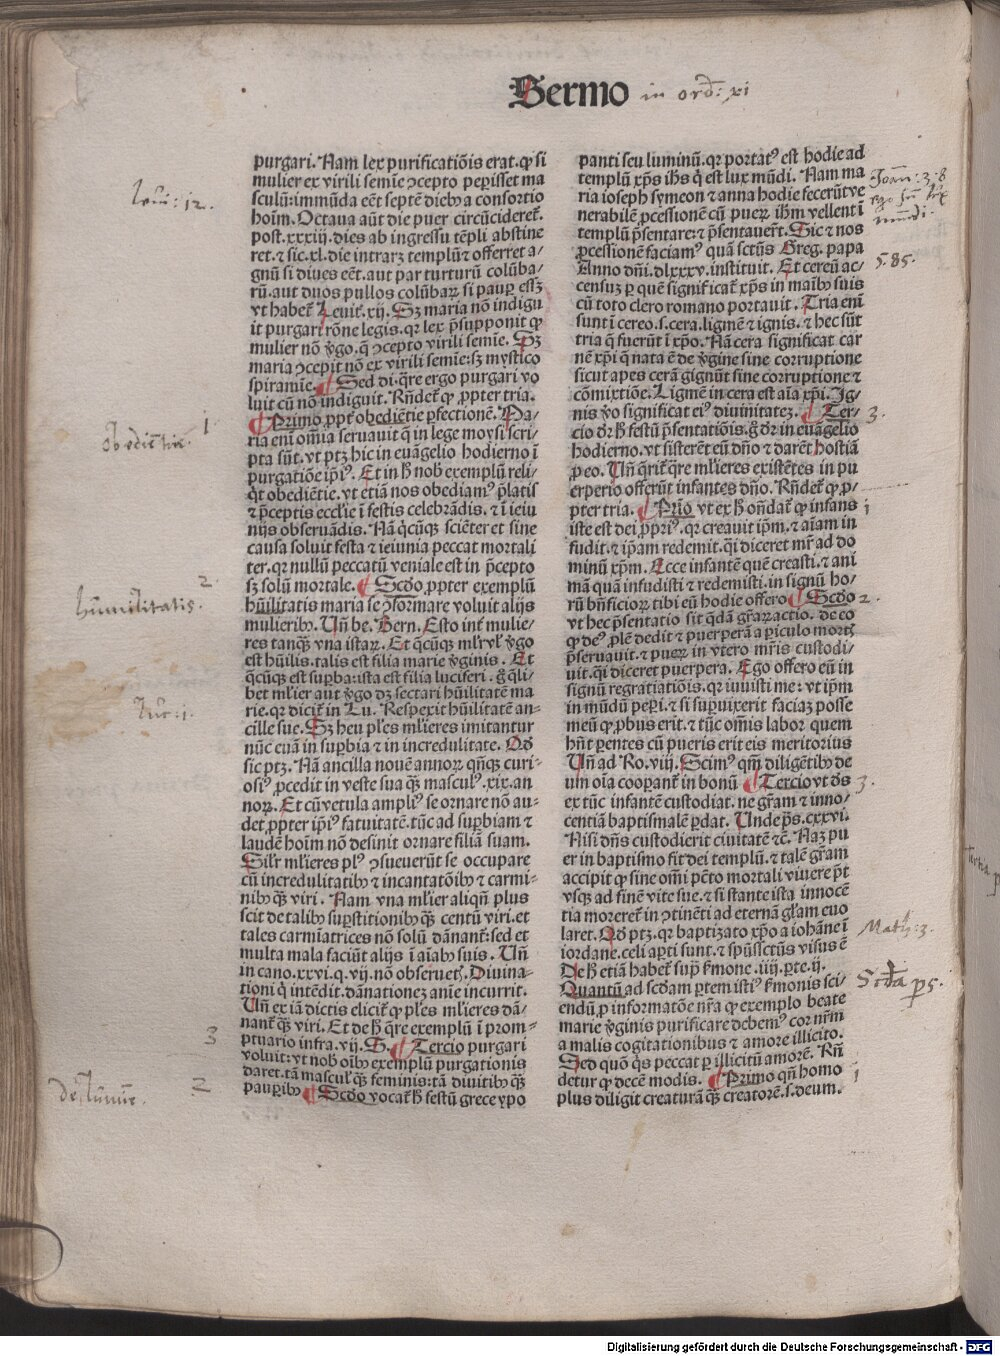 Sermo in ord: xi
purgari. Nam lex purificatiōis erat. qꝫ si
mulier ex virili semīe ↄcepto peperisset ma
sculū: immūda eēt septē diebꝫ a consortio
hoīm. Octaua aūt die puer circūcideret̄.
post. xxxiij. dies ab ingressu tēpli abstine
ret. ⁊ sic. xl. die intrarꝫ templū ⁊ offerret a⸗
gnū si diues eēt. aut par turturū colūba⸗
rū. aut duos pullos colūbaꝝ si paup̄ essꝫ
vt habet̄ Leuit. xij. Sꝫ maria nō indigu
it purgari rōne legis. qꝛ lex p̄supponit ꝙ
mulier nō v̄go. q̄ ↄcepto virili semīe. Sꝫ
maria ↄcepit nō ex virili semīe: sꝫ mystico
spiramīe. ¶ Sed di. q̄re ergo purgari vo
luit cū nō indiguit. Rn̄det̄ ꝙ ꝓpter tria.
¶ Primo ꝓpt̄ obediētie ꝑfectionē. Ma⸗
ria enī om̄ia seruauit q̄ in lege moysi scri⸗
pta sūt. vt ptꝫ hic in euāgelio hodierno ī
purgatiōe ip̄iꝰ. Et in h̄ nobꝫ exemplū reli⸗
q̄t obediētie. vt etiā nos obediamꝰ p̄latis
⁊ p̄ceptis eccl̄ie ī festis celebrādis. ⁊ ī ieiu
nijs obseruādis. Nā q̄cūqꝫ sciēter et sine
causa soluit festa ⁊ ieiunia peccat mortali
ter. qꝛ nullū peccatū veniale est in p̄cepto
sꝫ solū mortale. ¶ Scd̄o ꝓpter exemplū
hūilitatis maria se ↄformare voluit alijs
mulieribꝫ. Un̄ be. Bern. Esto int̄ mulie⸗
res tanqꝫ vna istaꝝ. Et q̄cūqꝫ ml̄r vl̓ v̄go
est hūilis. talis est filia marie v̄ginis. Et
q̄cūqꝫ est suꝑba: ista est filia luciferi. g̊ q̄li⸗
bet ml̓ier aut v̄go dꝫ sectari hūilitatē ma
rie. qꝛ dicit̄ in Lu. Respexit hūilitatē an⸗
cille sue. Sꝫ heu ples ml̓ieres imitantur
nūc euā in suꝑbia ⁊ in incredulitate. Qd̄
sic ptꝫ. Nā ancilla nouē annoꝝ q̄nqꝫ curi⸗
osiꝰ ꝓcedit in veste sua qꝫ masculꝰ. xix. an
noꝝ. Et cū vetula ampliꝰ se ornare nō au⸗
det ꝓpter ip̄iꝰ fatuitatē. tūc ad suꝑbiam ⁊
laudē hoīm nō desinit ornare filiā suam.
Sil̓r ml̓ieres plꝰ ↄsueuerūt se occupare
cū incredulitatibꝫ ⁊ incantatōibꝫ ⁊ carmi⸗
nibꝫ qꝫ viri. Nam vna ml̓ier aliqn̄ plus
scit de talibꝫ suꝑstitionibꝫ qꝫ centū viri. et
tales carmīatrices nō solū dānant̄: sed et
multa mala faciūt alijs ī aīabꝫ suis. Un̄
in cano. xxvi. q. vij. nō obseruetꝭ. Diuina⸗
tioni q̄ intēdit. dānationeꝫ anīe incurrit.
Un̄ ex iā dictis elicit̄ ꝙ ples ml̓ieres dā⸗
nant̄ qꝫ viri. Et de h̄ q̄re exemplū ī prom⸗
ptuario infra. vij. S. ¶ Tercio purgari
voluit: vt nobꝫ oībꝫ exemplū purgationis
daret. tā mascul̓ qꝫ feminis: tā diuitibꝫ qꝫ
pauꝑibꝫ ¶ Scd̄o vocat̄ h̄ festū grece ypo
panti seu luminū. qꝛ portatꝰ est hodie ad
templū xp̄s ih̄s q̄ est lux mūdi. Nam ma
ria ioseph symeon ⁊ anna hodie fecerūt ve
nerabilē ꝓcessionē cū pueꝝ ih̄m vellent ī
templū p̄sentare: ⁊ p̄sentauer̄t. Sic ⁊ nos
ꝓcessionē faciamꝰ quā sctūs Greg. papa
Anno dn̄i. dlxxxv. instituit. Et cereū ac⸗
censuꝫ ꝑ quē significat̄ xp̄s in maībꝫ suis
cū toto clero romano portauit. Tria enī
sunt ī cereo. s. cera. ligmē ⁊ ignis. ⁊ hec sūt
tria q̄ fuerūt ī xp̄o. Nā cera significat car
nē xp̄i q̄ nata ē de v̄gine sine corruptione
sicut apes cerā gignūt sine corruptione ⁊
cōmixtiōe. Ligmē in cera est aīa xp̄i. Ig⸗
nis v̊o significat eiꝰ diuinitateꝫ. ¶ Ter⸗
cio dr̄ h̄ festū p̄sentatiōis. g̊ dr̄ in euāgelio
hodierno. vt sisterēt eū dn̄o ⁊ darēt hostiā
ꝓ eo. Un̄ q̄rit̄ q̄re ml̓ieres existētes in pu
erperio offerūt infantes dn̄o. Rn̄det̄ ꝙ ꝓ⸗
pter tria. ¶ Prīo vt ex h̄ on̄dat̄ ꝙ infans
iste est dei ꝓpriꝰ. qꝛ creauit ip̄m. ⁊ aīam in
fudit. ⁊ ip̄am redemit. q̄i diceret mr̄ ad do
minū xp̄m. Ecce infantē quē creasti. ⁊ ani
mā quā infudisti ⁊ redemisti. in signū ho⸗
rū bn̄ficioꝝ tibi eū hodie offero ¶ Scd̄o
vt hec p̄sentatio sit q̄dā gr̄aꝝ actio. de eo
ꝙ deꝰ ꝓlē dedit ⁊ puerperā a ꝑiculo mortꝭ
p̄seruauit. ⁊ pueꝝ in vtero mr̄is custodi⸗
uit. q̄i diceret puerpera. Ego offero eū in
signū regratiatiōis. qꝛ iuuisti me: vt ip̄m
in mūdū peꝑi. ⁊ si suꝑuixerit faciaꝫ posse
meū ꝙ ꝓbus erit. ⁊ tūc om̄is labor quem
hn̄t ꝑentes cū pueris erit eis meritorius
Un̄ ad Ro. viij. Scimꝰ qm̄ diligētibꝫ de
um oīa cooꝑant̄ in bonū ¶ Tercio vt dn̄s
ex tūc infantē custodiat. ne gr̄am ⁊ inno⸗
centiā baptismalē ꝑdat. Unde p̄s. cxxvi.
Nisi dn̄s custodierit ciuitatē ⁊c̄. Naꝫ pu
er in baptismo fit dei templū. ⁊ talē gr̄am
accipit ꝙ sine om̄i pctō mortali viuere pt̄
vsqꝫ ad finē vite sue. ⁊ si stante ista innocē
tia moreret̄ in ↄtinēti ad eternā gl̓iam euo
laret. Qd̄ ptꝫ. qꝛ baptizato xp̄o a iohāne ī
iordane. celi aꝑti sunt. ⁊ spūssctūs visus ē
De h̄ etiā habet̄ sup̄ ẜmone. iiij. ꝑte. ij.
Quantū ad scd̄am ꝑtem istiꝰ ẜmonis sci⸗
endū ꝓ informatōe nr̄a ꝙ exemplo beate
marie v̄ginis purificare debemꝰ cor nr̄m
a malis cogitationibus ⁊ amore illicito.
Sed quō q̄s peccat ꝑ illicitū amorē. Rn̄
detur ꝙ decē modis. ¶ Primo qn̄ homo
plus diligit creaturā qꝫ creatorē. s. deum.
Leui: 12.
1
Obedientia.
2
humilitatis.
Luc: 1.
3
2
de lumine.
Joan: 3. 8
ego sum lux
mundi.
585.
3.
1
2.
3.
Math: 3.
Scda ps.
1
Digitalisierung gefördert durch die Deutsche Forschungsgemeinschaft - DFG